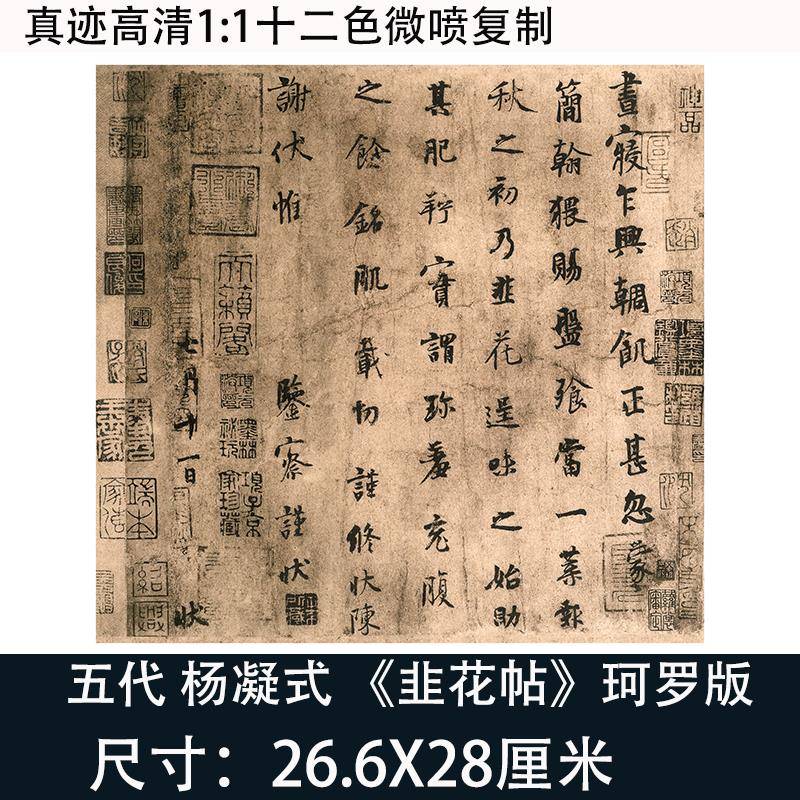 真迹高清1:1十二色微喷复制
神品
晝寢乍興輖飢正甚忽蒙
簡翰猥賜盤飧當一葉報
秋之初乃韭花逞味之始助
其肥羜實謂珍羞充腹
之餘銘肌載切謹修狀陳
謝伏惟 鑒察謹狀
天籟閣
墨林秘玩
項子京家珍藏
七月十一日 狀
五代 杨凝式 《韭花帖》珂罗版
尺寸：26.6X28厘米